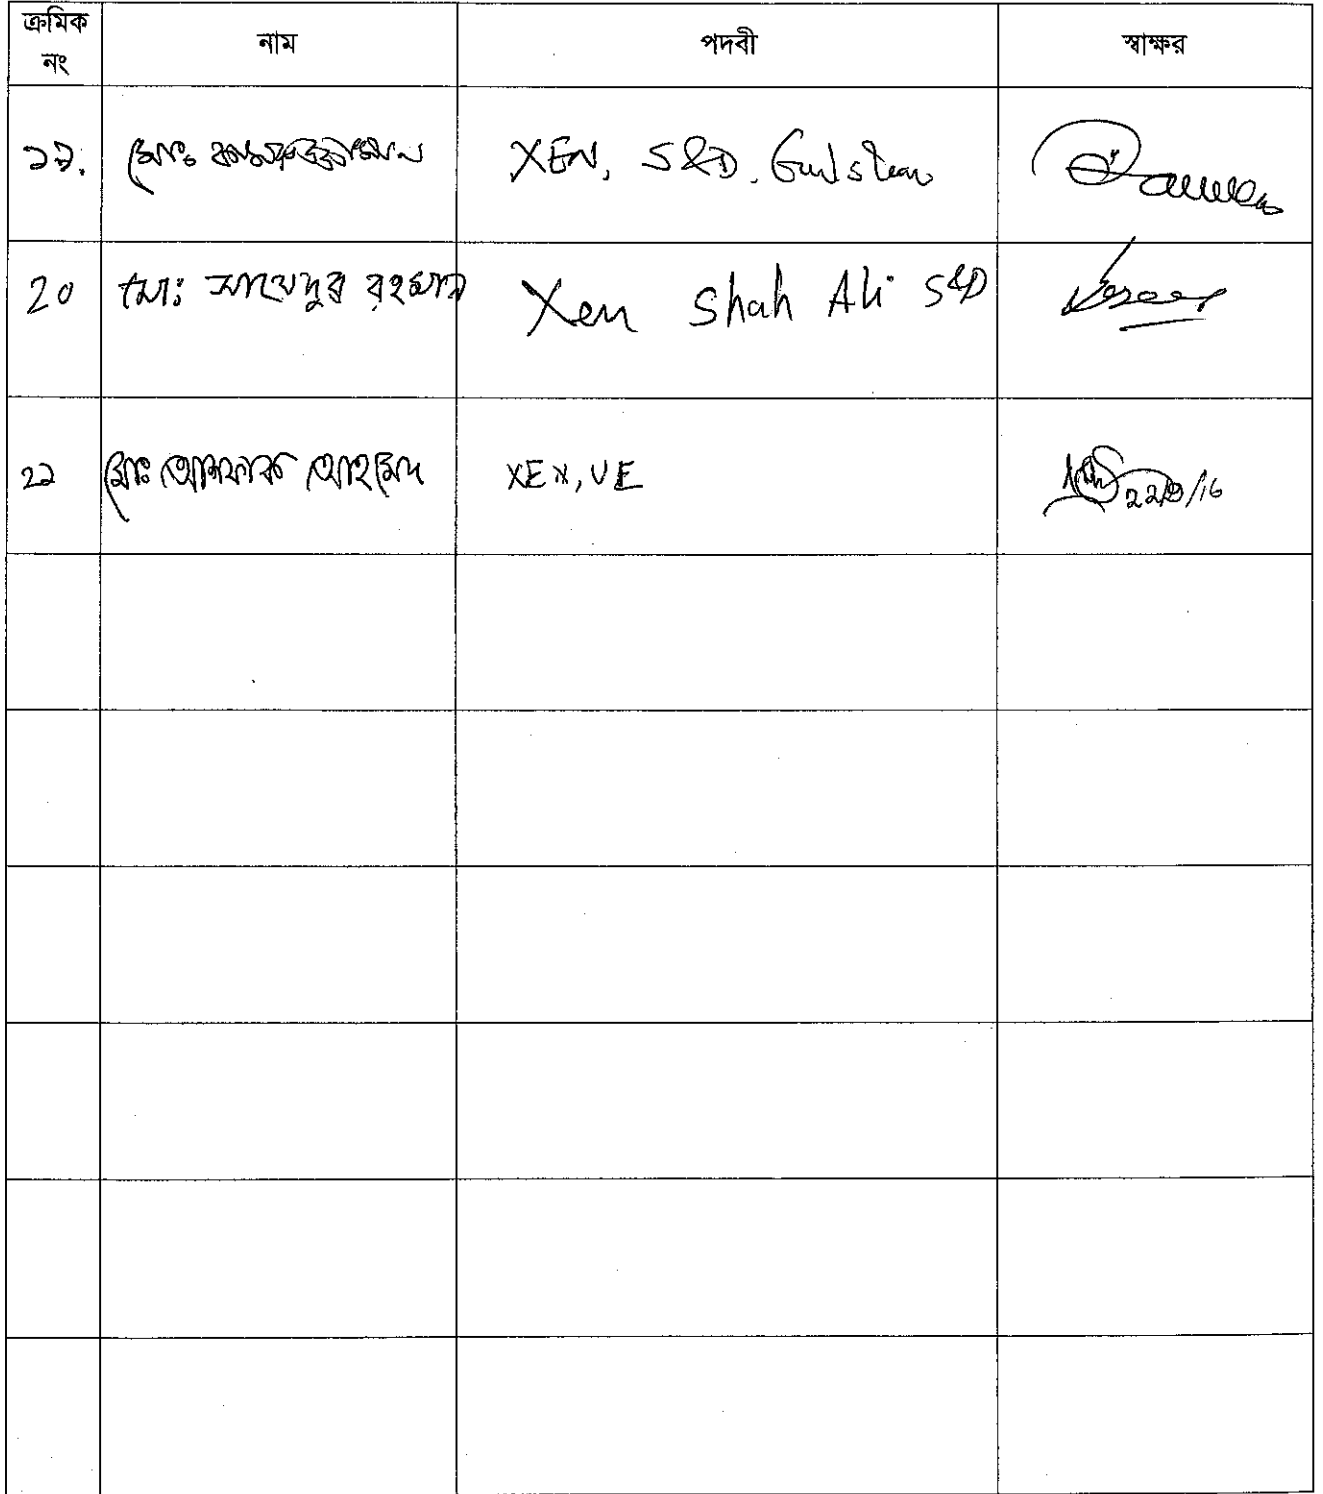 ক্রমিক নং নাম পদবী স্বাক্ষর
১৯. মোঃ কামরুজ্জামান XEN, S&D, Gulshan
20 মোঃ সায়েদুর রহমান Xen Shah Ali S&D
২১ মোঃ আশফাক আহমেদ XEN, VE /16